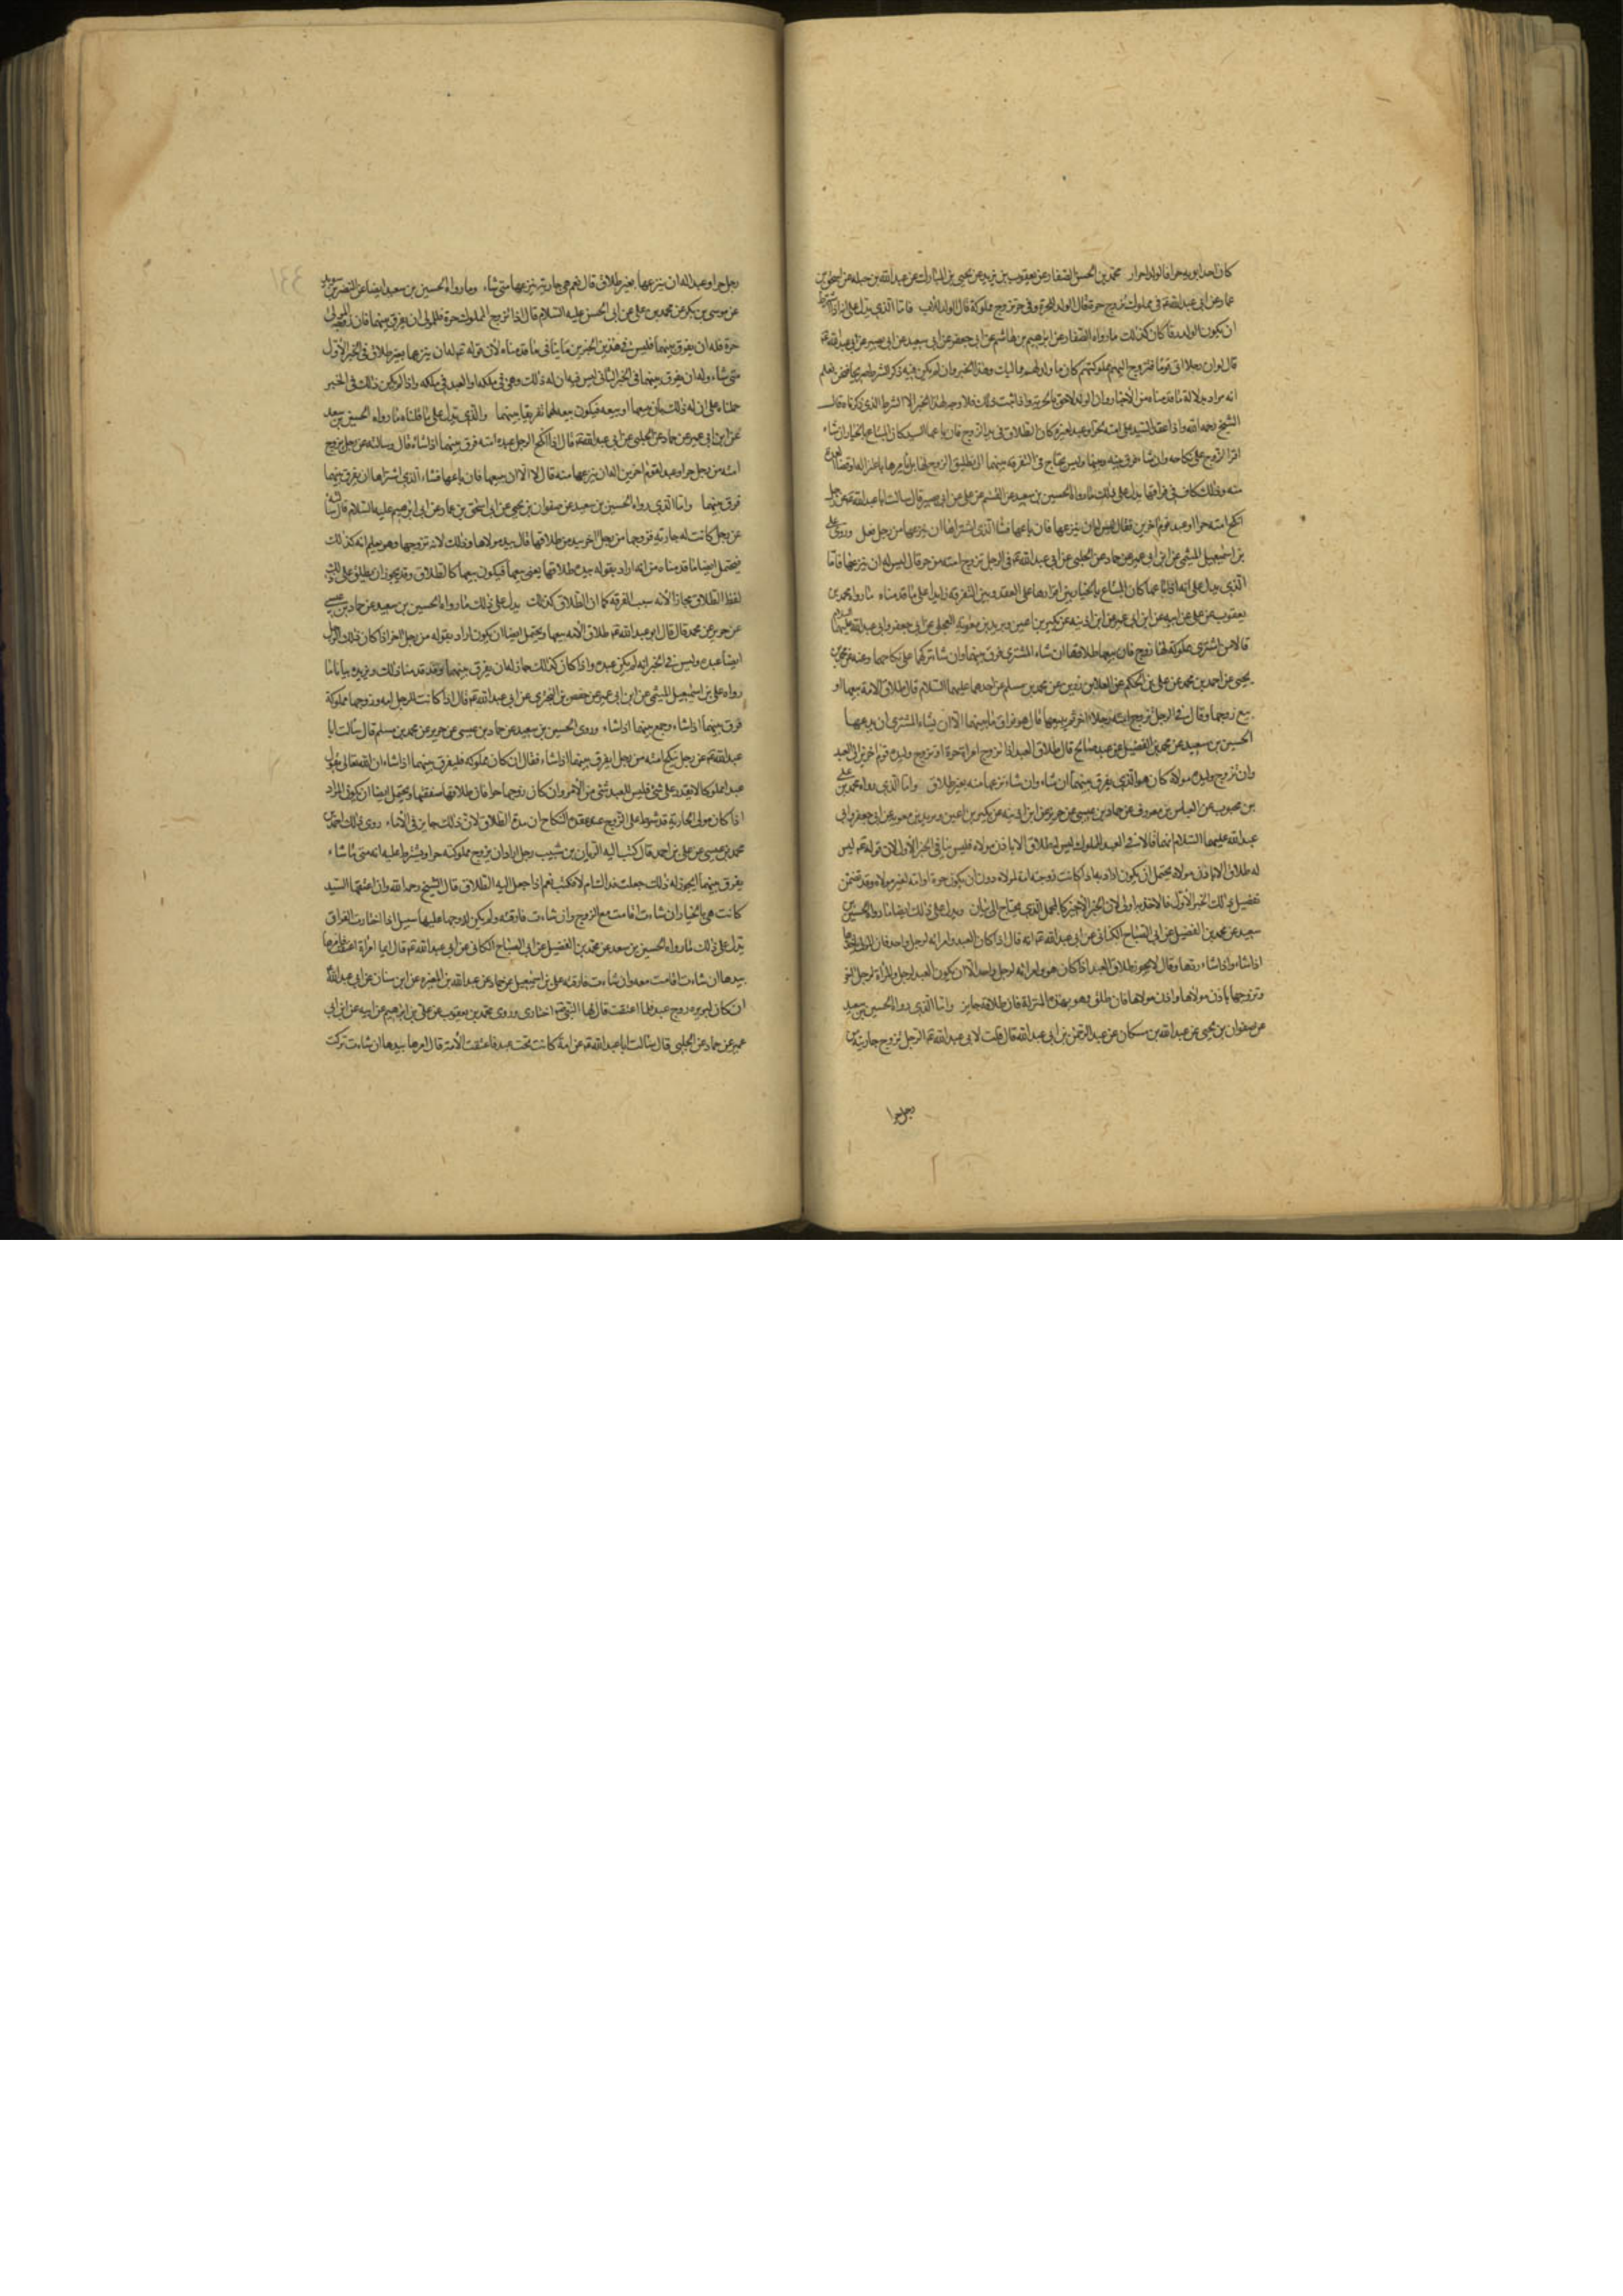 كان احد ابويه حرا فالولد احرار محمد بن الحسن الصفار عن يعقوب بن يزيد عن يحيى بن المبارك عن عبد الله بن جبله عن اسحق بن
عمار عن ابى عبد الله ع فى مملوك تزوج حرة قال الولد للحرة وفى حر تزوج مملوكة قال الولد للاب فاما الذى يدل على انه اذا شرط
ان يكون الولد رقا كان كذلك ما رواه الصفار عن ابرهيم بن هاشم عن ابى جعفر عن ابى سعيد عن ابى بصير عن ابى عبد الله ع
قال لو ان رجلا اتى قوما فتزوج اليهم مملوكتهم كان ما ولد لهم مماليك وهذا الخبر وان لم يكن فيه ذكر الشرط صريحا فنحن نعلم
انه مراد بدلالة ما قدمناه من الاخبار وان الولد لاحق بالحرية واذا ثبت ذلك فلا وجه لهذا الخبر الا الشرط الذى ذكرناه قال
الشيخ رحمه الله واذا عقد السيد على امته لحر او عبد لغيره كان الطلاق فى يد الزوج فان باعها السيد كان المبتاع بالخيار ان شاء
اقر الزوج على نكاحه وان شاء فرق بينه وبينها وليس يحتاج فى التفرقه بينهما الى تطليق الزوج لها بل يامرها باعتزاله وقضاء العدة
منه وذلك كاف فى فراقها يدل على ذلك ما رواه الحسين بن سعيد عن القسم عن على عن ابى بصير قال سالت ابا عبد الله ع عن رجل
انكح امته حرا او عبد قوم اخرين فقال ليس له ان ينزعها فان باعها فشاء الذى اشتراها ان ينزعها من رجل فعل وروى على
بن اسمعيل الميثمى عن ابن ابى عمير عن حماد عن الحلبى عن ابى عبد الله ع فى الرجل تزوج امته من حر قال ليس له ان ينزعها فاما
الذى يدل على انه اذا باعها كان المبتاع بالخيار بين اقرارها على العقد وبين التفرقه زايدا على ما قدمناه ما رواه محمد بن
يعقوب عن على عن ابيه عن ابن ابى عمير عن ابن اذينه عن بكير بن اعين وبريد بن معويه العجلى عن ابى جعفر وابى عبد الله عليهما السلام
قالا من اشترى مملوكة لها زوج فان بيعها طلاقها ان شاء المشترى فرق بينهما وان شاء تركهما على نكاحهما وعنه عن محمد بن
يحيى عن احمد بن محمد عن على بن الحكم عن العلا بن رزين عن محمد بن مسلم عن احدهما عليهما السلام قال طلاق الامة بيعها او
بيع زوجها وقال فى الرجل تزوج امته رجلا اخر ثم يبيعها قال هو فراق ما بينهما الا ان يشاء المشترى ان يدعهما
الحسين بن سعيد عن محمد بن الفضيل عن عبد صالح قال طلاق العبد اذا تزوج امراة حرة او تزوج وليدة قوم اخرين الى العبد
وان تزوج وليدة مولاه كان هو الذى يفرق بينهما ان شاء وان شاء نزعها منه بغير طلاق واما الذى رواه محمد بن على
بن محبوب عن العباس بن معروف عن حماد بن عيسى عن حريز عن ابن اذينه عن بكير بن اعين وبريد بن معويه عن ابى جعفر وابى
عبد الله عليهما السلام انهما قالا فى العبد المملوك ليس له طلاق الا باذن مولاه فليس ينافى الخبر الاول لان قوله ع ليس
له طلاق الا باذن مولاه يحتمل ان يكون اراد به اذا كانت زوجته امة لمولاه دون ان يكون حرة او امة لغير مولاه وقد تضمن
تفصيل ذلك الخبر الاول فالاخذ به اولى لان الخبر الاخير كالمجمل الذى يحتاج الى بيان ويدل على ذلك ايضا ما رواه الحسين بن
سعيد عن محمد بن الفضيل عن ابى الصباح الكنانى عن ابى عبد الله ع انه قال اذا كان العبد وامراته لرجل واحد فان المولى ياخذها
اذا شاء واذا شاء ردها وقال لا يجوز طلاق العبد اذا كان هو وامراته لرجل واحد الا ان يكون العبد لرجل والمراة لرجل اخر
وتزوجها باذن مولاها واذن مولاها فان طلق وهو بهذه المنزلة فان طلاقه جايز واما الذى رواه الحسين بن سعيد
عن صفوان بن يحيى عن عبد الله بن مسكان عن عبد الرحمن بن ابى عبد الله قال قلت لابى عبد الله ع الرجل يزوج جاريته من
رجل حرا
رجل حر او عبد اله ان ينزعها بغير طلاق قال نعم هى جاريته ينزعها متى شاء وما رواه الحسين بن سعيد ايضا عن النضر بن سويد
عن موسى بن بكر عن محمد بن على عن ابى الحسن عليه السلام قال اذا تزوج المملوك حرة فللمولى ان يفرق بينهما فان زوجه المولى
حرة فله ان يفرق بينهما فليس فى هذين الخبرين ما ينافى ما قدمناه لان قوله ع له ان ينزعها بغير طلاق فى الخبر الاول
متى شاء وله ان يفرق بينهما فى الخبر الثانى ليس فيه ان له ذلك وهى فى ملكه او العبد فى ملكه واذا لم يكن ذلك فى الخبر
حملناه على ان له ذلك بان يبيعها او يبيعه فيكون بيعه لهما تفريقا بينهما والذى يدل على ما قلناه ما رواه الحسين بن سعيد
عن ابن ابى عمير عن حماد عن الحلبى عن ابى عبد الله ع قال اذا انكح الرجل عبده امته فرق بينهما اذا شاء قال وسالته عن رجل يزوج
امته من رجل حر او عبد لقوم اخرين اله ان ينزعها منه قال لا الا ان يبيعها فان باعها فشاء الذى اشتراها ان يفرق بينهما
فرق بينهما واما الذى رواه الحسين بن سعيد عن صفوان بن يحيى عن ابى اسحق بن عمار عن ابى ابرهيم عليه السلام قال سالته
عن رجل كانت له جارية فزوجها من رجل اخر بيد من طلاقها قال بيد مولاها وذلك لانه تزوجها وهو يعلم انه كذلك
فيحتمل ايضا ما قدمناه من انه اراد بقوله بيده طلاقها يعنى بيعها فيكون بيعها كالطلاق وقد يجوز ان يطلق على ذلك
لفظ الطلاق مجازا لانه سبب الفرقه كما ان الطلاق كذلك يدل على ذلك ما رواه الحسين بن سعيد عن حماد بن عيسى
عن حريز عن محمد قال قال ابو عبد الله ع طلاق الامه بيعها ويحتمل ايضا ان يكون اراد بقوله من رجل اخر اذا كان ذلك الرجل
ايضا عبده وليس فى الخبر انه لم يكن عبده واذا كان كذلك جاز له ان يفرق بينهما وقد قدمنا ذلك ويزيده بيانا ما
رواه على بن اسمعيل الميثمى عن ابن ابى عمير عن حفص بن البخترى عن ابى عبد الله ع قال اذا كانت للرجل امه وزوجها مملوكه
فرق بينهما اذا شاء وجمع بينهما اذا شاء وروى الحسين بن سعيد عن حماد بن عيسى عن حريز عن محمد بن مسلم قال سالت ابا
عبد الله ع عن رجل ينكح امته من رجل ايفرق بينهما اذا شاء فقال ان كان مملوكه فليفرق بينهما اذا شاء ان الله تعالى يقول
عبدا مملوكا لا يقدر على شئ فليس للعبد شئ من الامر وان كان زوجها حرا فان طلاقها صفقتها ويحتمل ايضا ان يكون المراد
اذا كان مولى الجارية قد شرط على الزوج عند عقدة النكاح ان بيده الطلاق لان ذلك جايز فى الاماء روى ذلك احمد بن
محمد بن عيسى عن على بن احمد قال كتب اليه الريان بن شبيب رجل اراد ان يزوج مملوكته حرا ويشترط عليه انه متى ما شاء
يفرق بينهما ايجوز له ذلك جعلت فداك ام لا فكتب نعم اذا جعل اليه الطلاق قال الشيخ رحمه الله وان اعتقها السيد
كانت هى بالخيار ان شاءت اقامت مع الزوج وان شاءت فارقته ولم يكن لزوجها عليها سبيل اذا اختارت الفراق
يدل على ذلك ما رواه الحسين بن سعيد عن محمد بن الفضيل عن ابى الصباح الكنانى عن ابى عبد الله ع قال ايما امراة اعتقت فامرها
بيدها ان شاءت اقامت معه وان شاءت فارقته على بن اسمعيل عن حماد عن عبد الله بن المغيره عن ابن سنان عن ابى عبد الله ع
انه كان لبريره زوج عبد فلما اعتقت قال لها النبى ص اختارى وروى محمد بن يعقوب عن على بن ابرهيم عن ابيه عن ابن ابى
عمير عن حماد عن الحلبى قال سالت ابا عبد الله ع عن امة كانت تحت عبد فاعتقت الامة قال امرها بيدها ان شاءت تركت